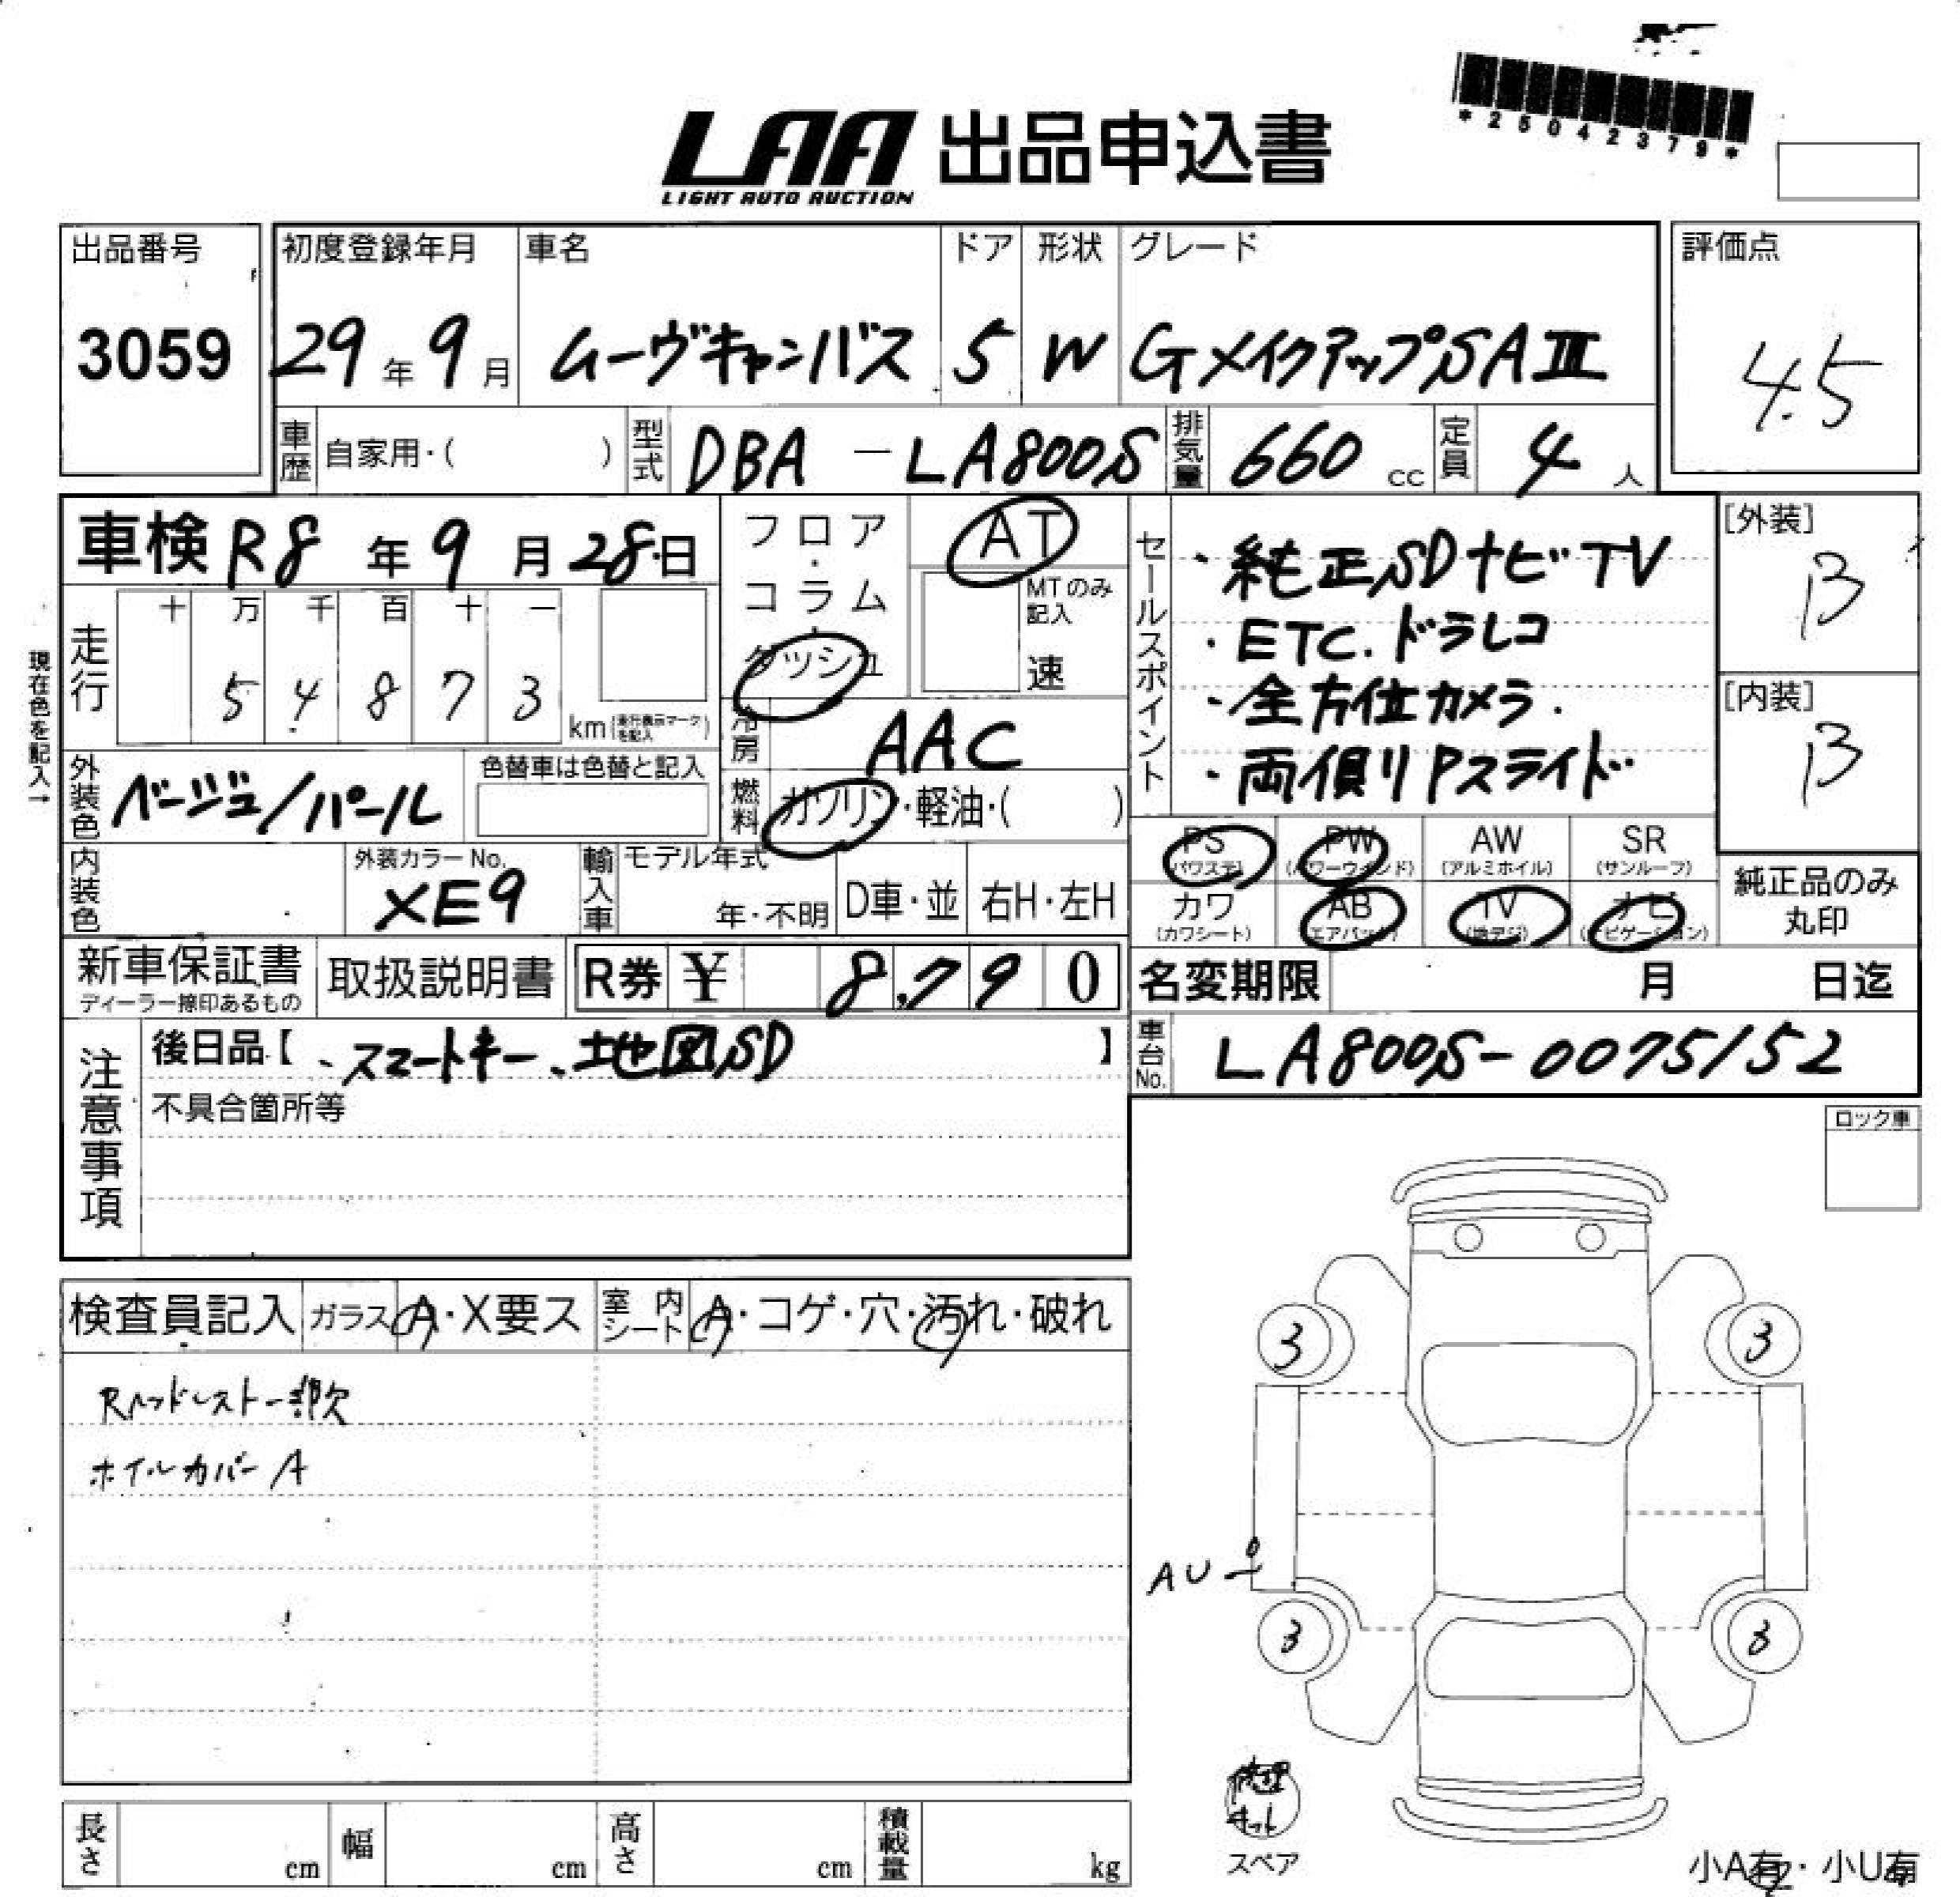 *25042379*
LAA 出品申込書
LIGHT AUTO AUCTION
出品番号 初度登録年月 車名 ドア 形状 グレード 評価点
3059 29年9月 ムーヴキャンバス 5 W GメイクアップSAⅢ 4.5
車歴 自家用・( ) 型式 DBA-LA800S 排気量 660cc 定員 4人
車検 R8年9月28日
フロア・コラム・ダッシュ
AT
MTのみ記入
速
セールスポイント
・純正SDナビTV
・ETC.ドラレコ
・全方位カメラ.
・両側リPスライド
[外装]
B
[内装]
B
現在色を記入→
走行 十 万 千 百 十 一
5 4 8 7 3
km(走行表示マークを記入)
冷房 AAC
外装色 ベージュ/パール 色替車は色替と記入
燃料 ガソリン・軽油・( )
PS (パワステ) PW (パワーウインド) AW (アルミホイル) SR (サンルーフ)
カワ (カワシート) AB (エアバック) TV (地デジ) ナビ (ナビゲーション)
純正品のみ
丸印
内装色 外装カラーNo. XE9 輸入車 モデル年式 年・不明 D車・並 右H・左H
新車保証書 取扱説明書 R券 ¥ 8,790
ディーラー捺印あるもの
名変期限 月 日迄
車台No. LA800S-0075152
注意事項
後日品【、スマートキー、地図SD】
不具合箇所等
ロック車
検査員記入 ガラス A・X要ス 室内シート A・コゲ・穴・汚れ・破れ
Rヘッドレスト一部欠
ホイルカバーA
3 3
AU
3 3
修理キット
スペア
小A有・小U有
長さ cm 幅 cm 高さ cm 積載量 kg